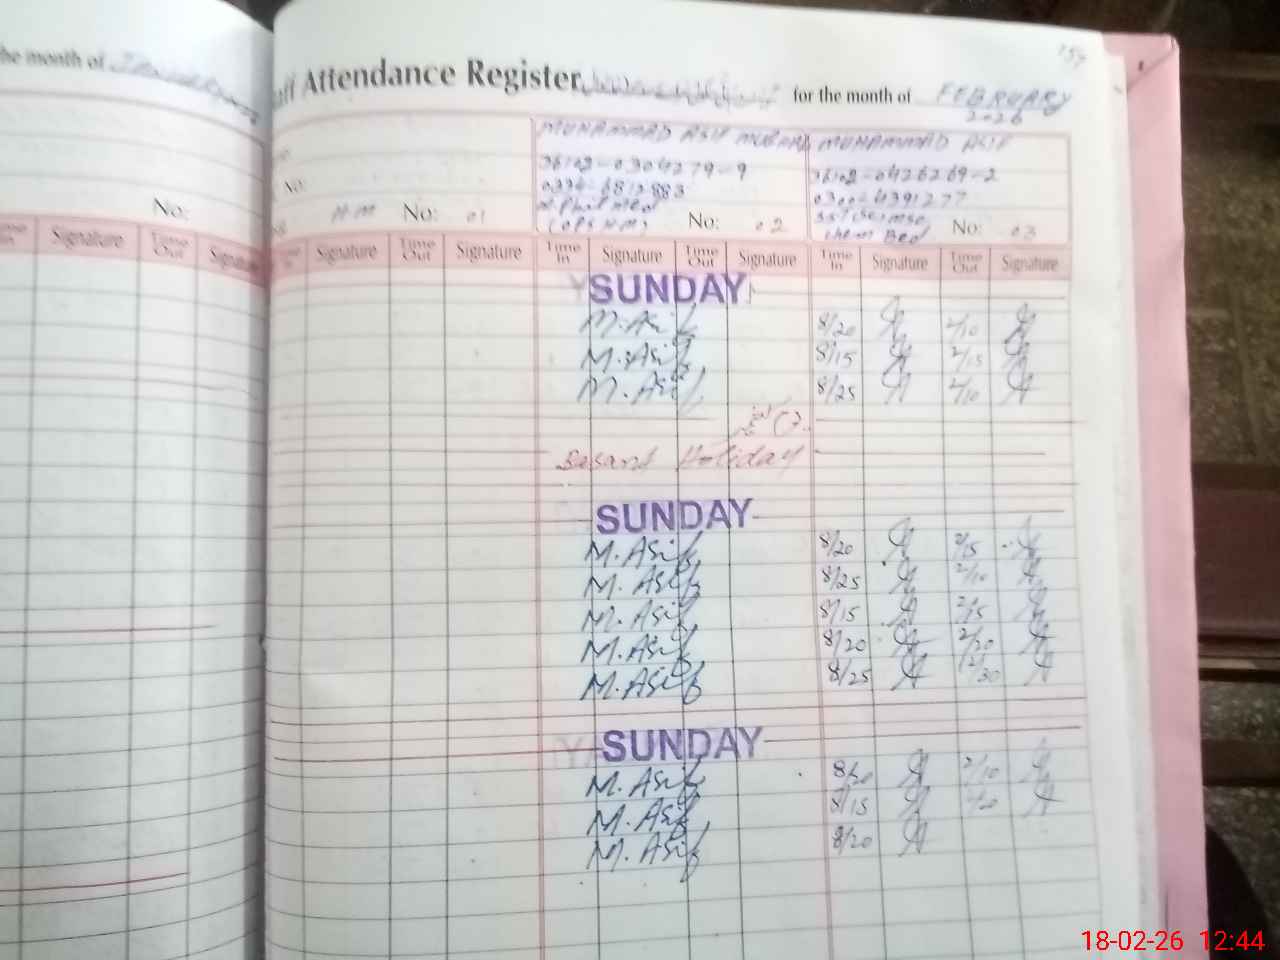 the month of
Staff Attendance Register for the month of FEBRUARY
2026
No:
MUHAMMAD ASIF MUBARAK MUHAMMAD ASIF
36102-0304279-9 36102-0426269-2
0334-6812883 0300-4391277
M.Phil Med
(OPS H.M) No: 02 No: 03
No: H.M No: 01
Signature Time Out Signature
Time In Signature Time Out Signature Time In Signature Time Out Signature Time In Signature Time Out Signature
SUNDAY
M.Asif 8/20 2/10
M.Asif 8/15 2/15
M.Asif 8/25 2/10
Basant Holiday
SUNDAY
M.Asif 8/20 2/15
M.Asif 8/25 2/10
M.Asif 8/15 2/15
M.Asif 8/20 2/20
M.Asif 8/25 12/30
SUNDAY
M.Asif 8/20 2/10
M.Asif 8/15 2/20
M.Asif 8/20
18-02-26 12:44